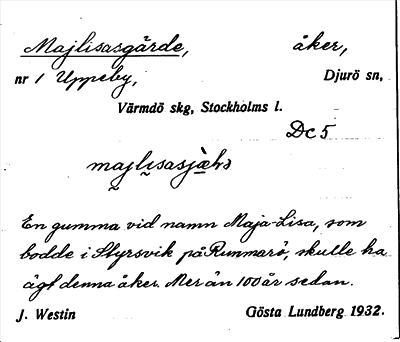 Majlisasgärde, åker,
nr 1 Uppeby, Djurö sn,
Värmdö skg, Stockholms l.
Dc5
En gumma vid namn Maja-Lisa, som
bodde i Styrsvik på Runmarö, skulle ha
ägt denna åker. Mer än 100 år sedan.
J. Westin Gösta Lundberg 1932.